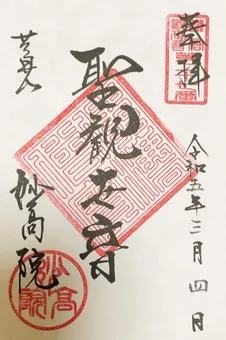 奉拝
令和五年三月四日
聖観世音
妙高院
妙高院